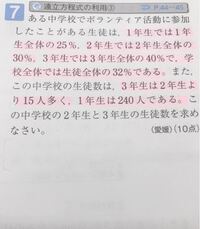 7 連立方程式の利用③ P.44~45
ある中学校でボランティア活動に参加
したことがある生徒は，1年生では1年
生全体の25%，2年生では2年生全体の
30%，3年生では3年生全体の40%で，学
校全体では生徒全体の32%である。また，
この中学校の生徒数は，3年生は2年生
より15人多く，1年生は240人である。こ
の中学校の2年生と3年生の生徒数を求め
なさい。
(愛媛)(10点)